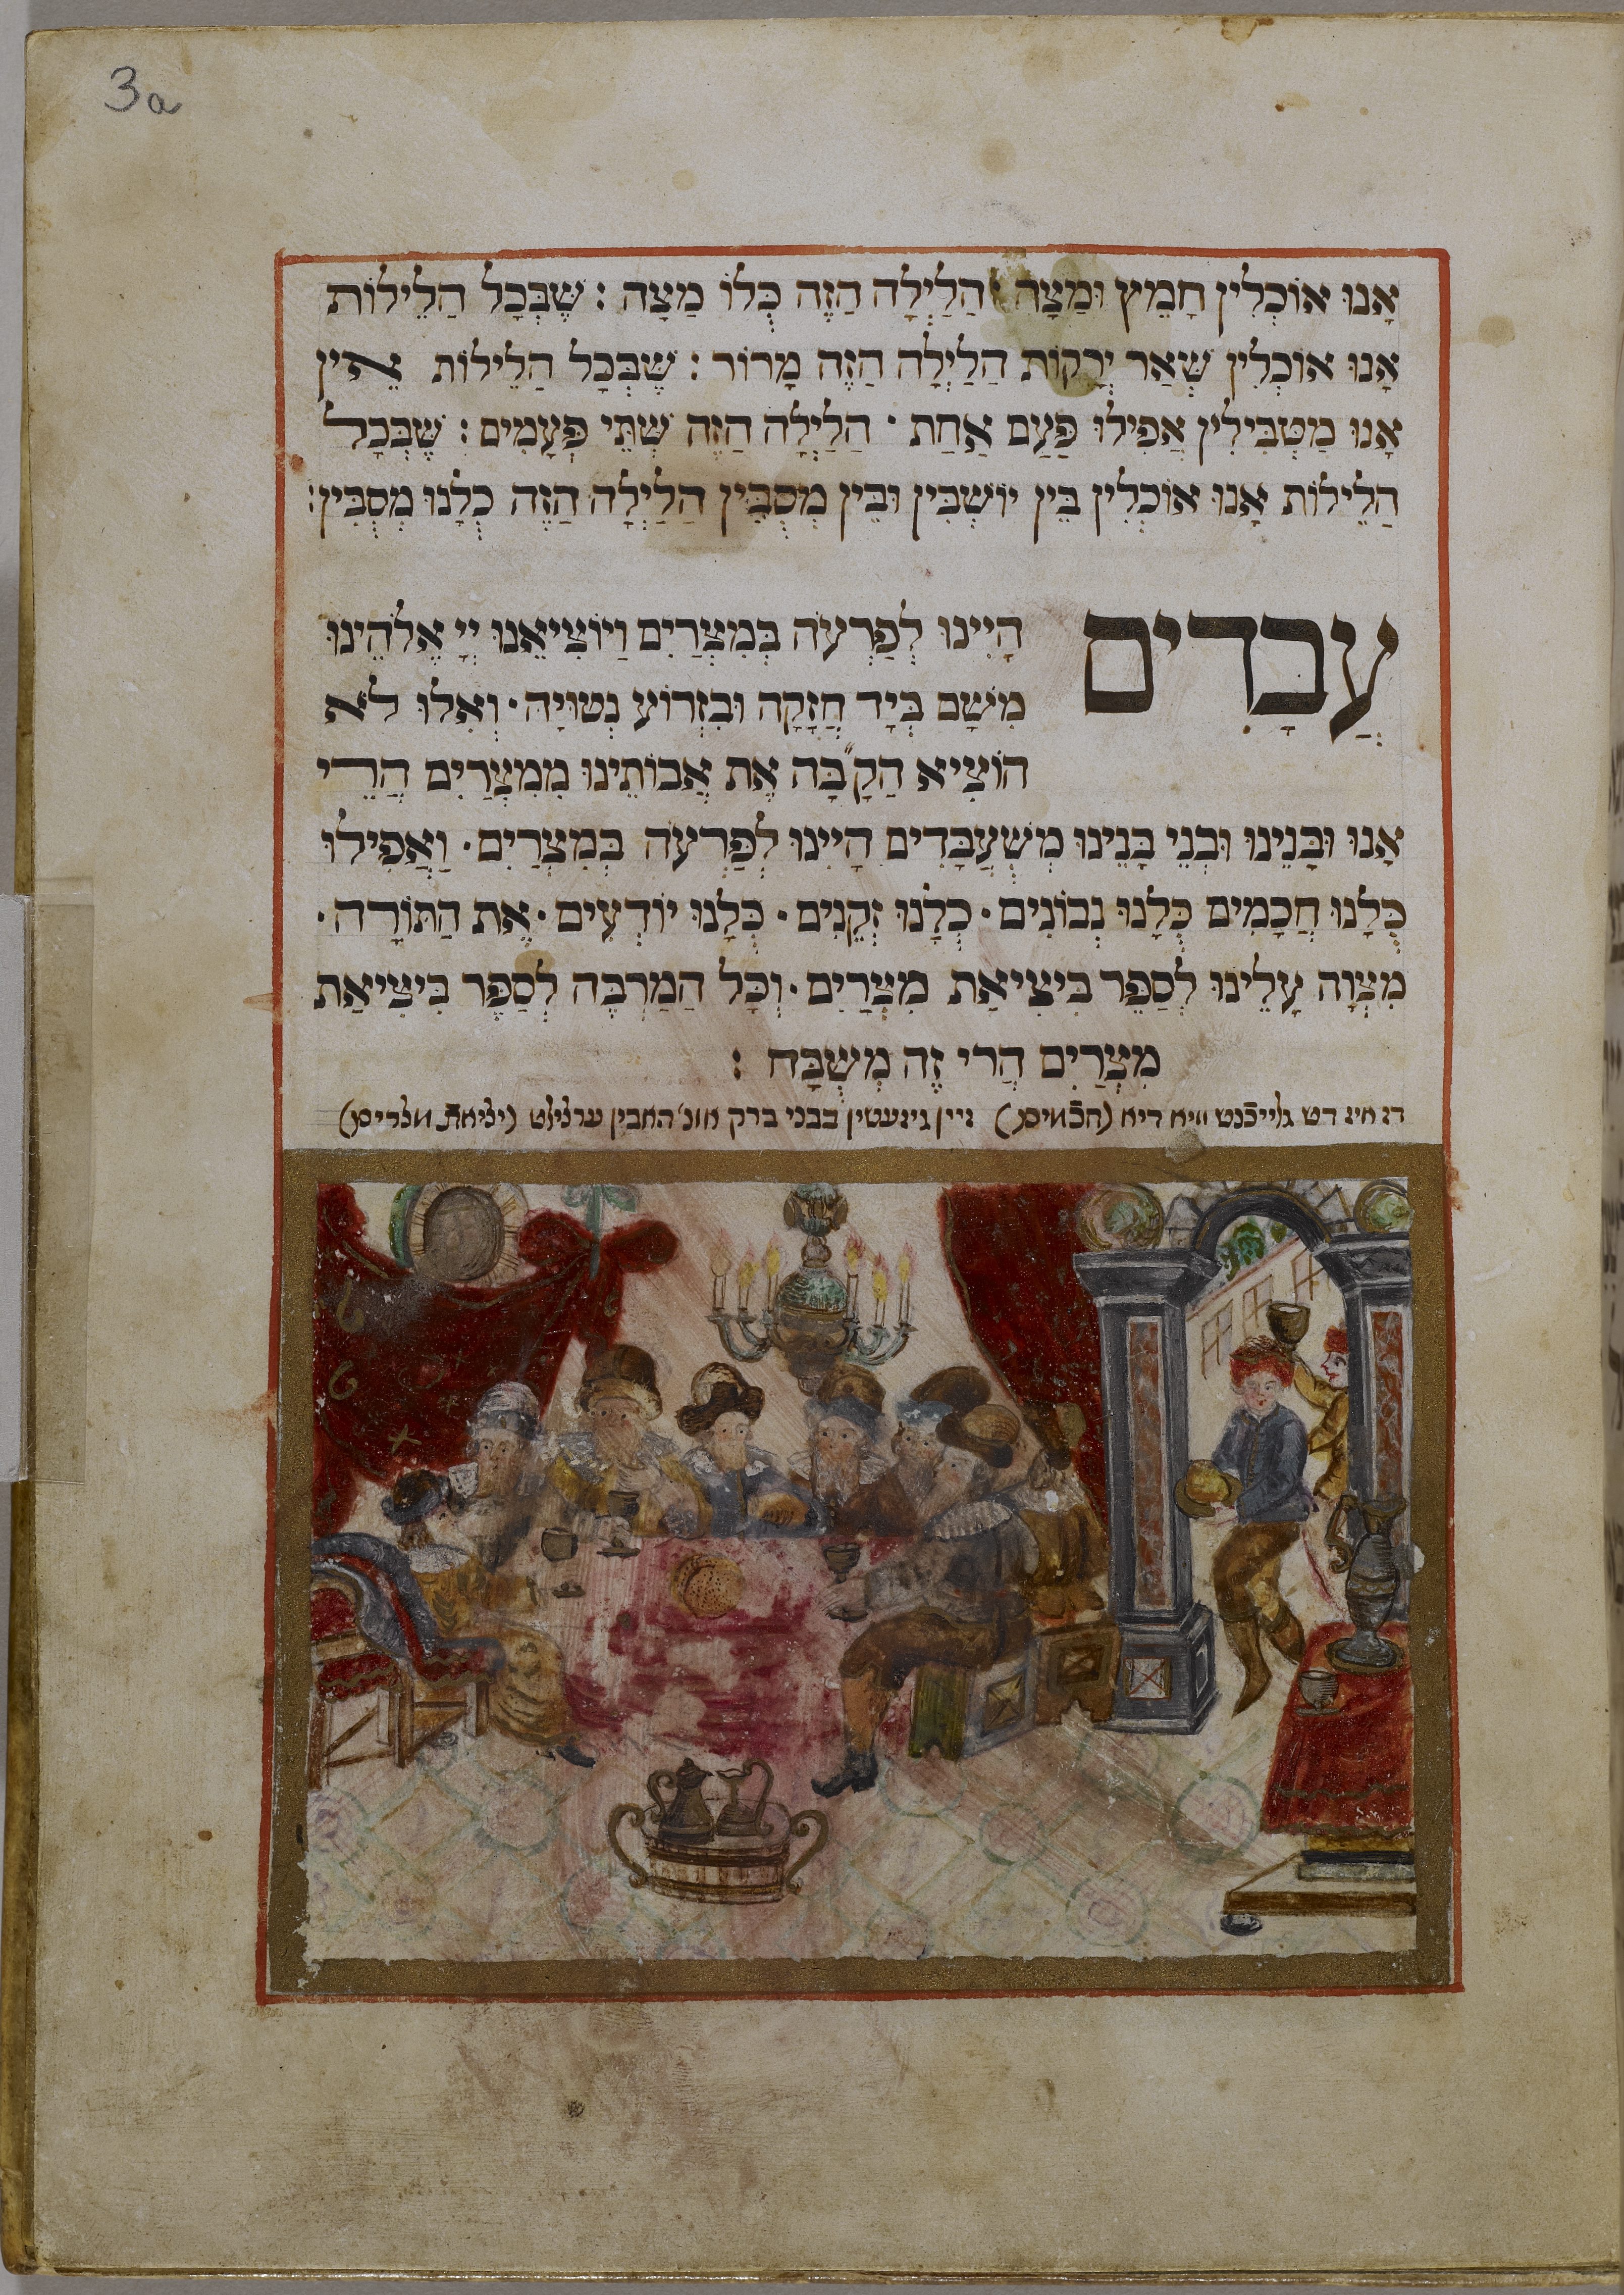 3a
אָנוּ אוֹכְלִין חָמֵץ וּמַצָה הַלַיְלָה הַזֶה כֻּלוֹ מַצָה : שֶׁבְּכָל הַלֵילוֹת
אָנוּ אוֹכְלִין שְׁאַר יְרָקוֹת הַלַיְלָה הַזֶה מָרוֹר : שֶׁבְּכָל הַלֵילוֹת אֵין
אָנוּ מַטְבִּילִין אֲפִילוּ פַּעַם אַחַת · הַלַיְלָה הַזֶה שְׁתֵּי פְּעָמִים : שֶׁבְּכָל
הַלֵילוֹת אָנוּ אוֹכְלִין בֵּין יוֹשְׁבִּין וּבֵין מְסֻבִּין הַלַיְלָה הַזֶה כֻּלָנוּ מְסֻבִּין:
עֲבָדִים
הָיִינוּ לְפַרְעֹה בְּמִצְרַיִם וַיוֹצִיאֵנוּ יְיָ אֱלֹהֵינוּ
מִשָׁם בְּיָד חֲזָקָה וּבִזְרוֹעַ נְטוּיָה · וְאִלוּ לֹא
הוֹצִיא הַקָ״בָּה אֶת אֲבוֹתֵינוּ מִמִצְרַיִם הֲרֵי
אָנוּ וּבָנֵינוּ וּבְנֵי בָּנֵינוּ מְשֻׁעֲבָּדִים הָיִינוּ לְפַּרְעֹה בְּמִצְרַיִם · וַאֲפִילוּ
כֻּלָנוּ חֲכָמִים כֻּלָנוּ נְבוֹנִים · כֻּלָנוּ זְקֵנִים · כֻּלָנוּ יוֹדְעִים · אֶת הַתּוֹרָה ·
מִצְוָה עָלֵינוּ לְסַפֵּר בִּיצִיאַת מִצְרַיִם · וְכָּל הַמַרְבֶּה לְסַפֵּר בִּיצִיאַת
מִצְרַיִם הֲרֵי זֶה מְשֻׁבָּח :
דז אינ דט גלייכנט וויא דיא (חכמים) זיין גיזעסין בבני ברק אונ׳ האבין ערצילט (יציאת מצרים)